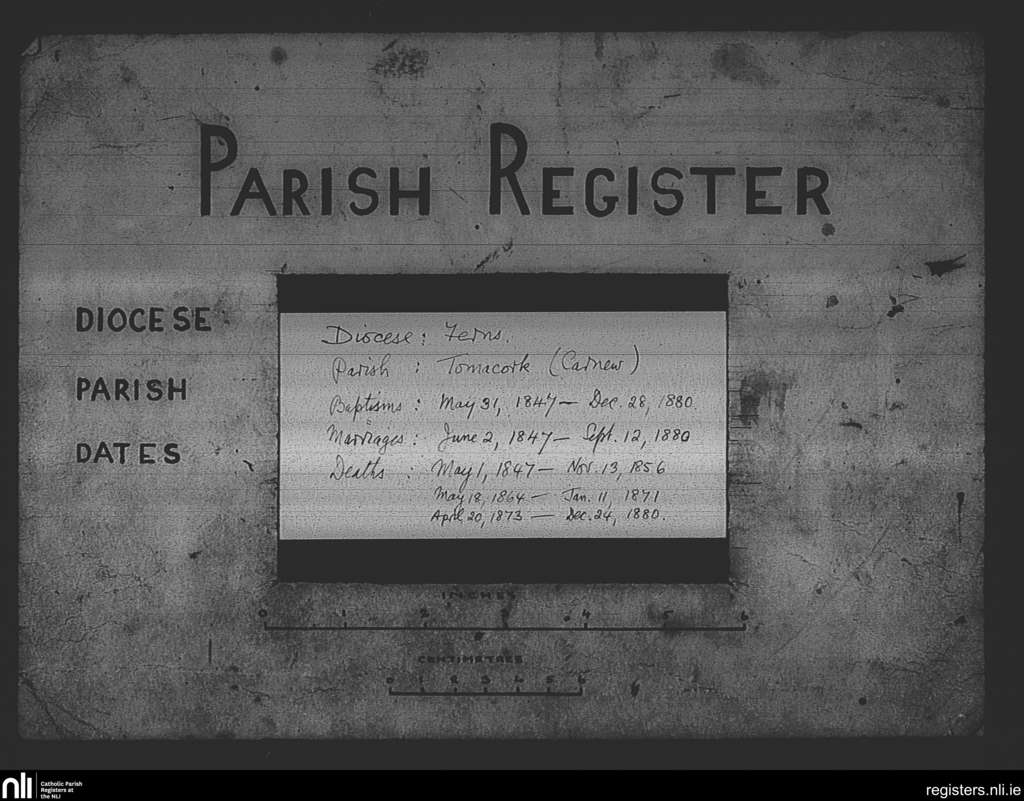 PARISH REGISTER
DIOCESE
PARISH
DATES
Diocese: Ferns.
Parish : Tomacork (Carnew)
Baptisms : May 31, 1847 — Dec. 28, 1880.
Marriages : June 2, 1847 — Sept. 12, 1880
Deaths : May 1, 1847 — Nov. 13, 1856
May 18, 1864 — Jan. 11, 1871
April 20, 1873 — Dec. 24, 1880.
INCHES
0 1 2 3 4 5 6
CENTIMETRES
0 1 2 3 4 5 6
nli
Catholic Parish
Registers at
the NLI
registers.nli.ie